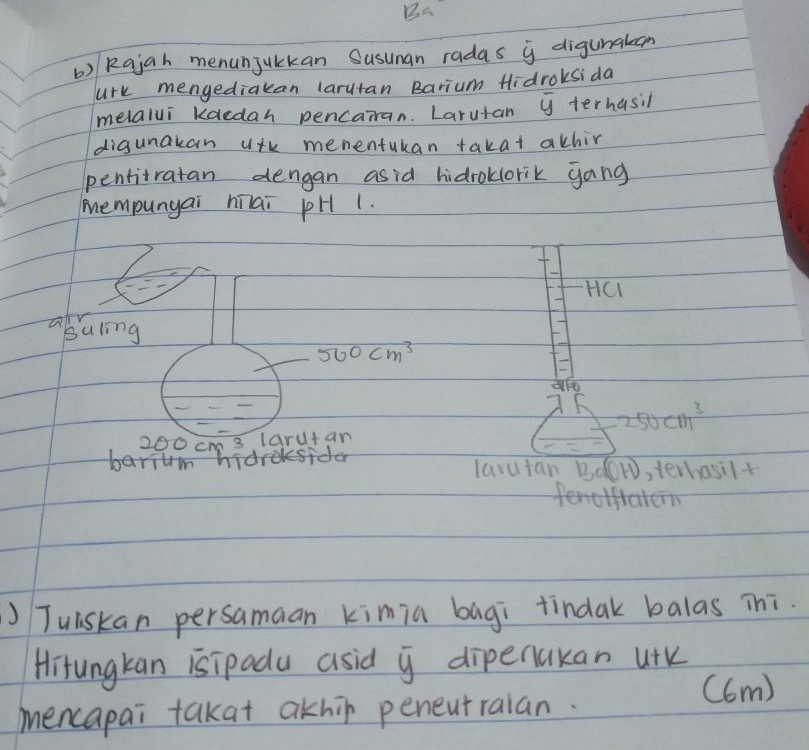 Ba
b) Rajah menunjukkan susunan radas ȳ digunakan
utk mengediakan larutan Barium Hidroksida
melalui kaedah pencairan. Larutan ȳ terhasil
digunakan utk menentukan takat akhir
pentitratan dengan asid hidroklorik yang
mempunyai nilai pH 1.
air
suling
500 cm³
200 cm³ larutan
barium hidroksida
HCl
250 cm³
larutan Ba(OH)₂ terhasil +
fenolftalein
i) Tuliskan persamaan kimia bagi tindak balas ini.
Hitungkan isipadu asid ȳ diperlukan utk
mencapai takat akhir peneutralan. (6m)